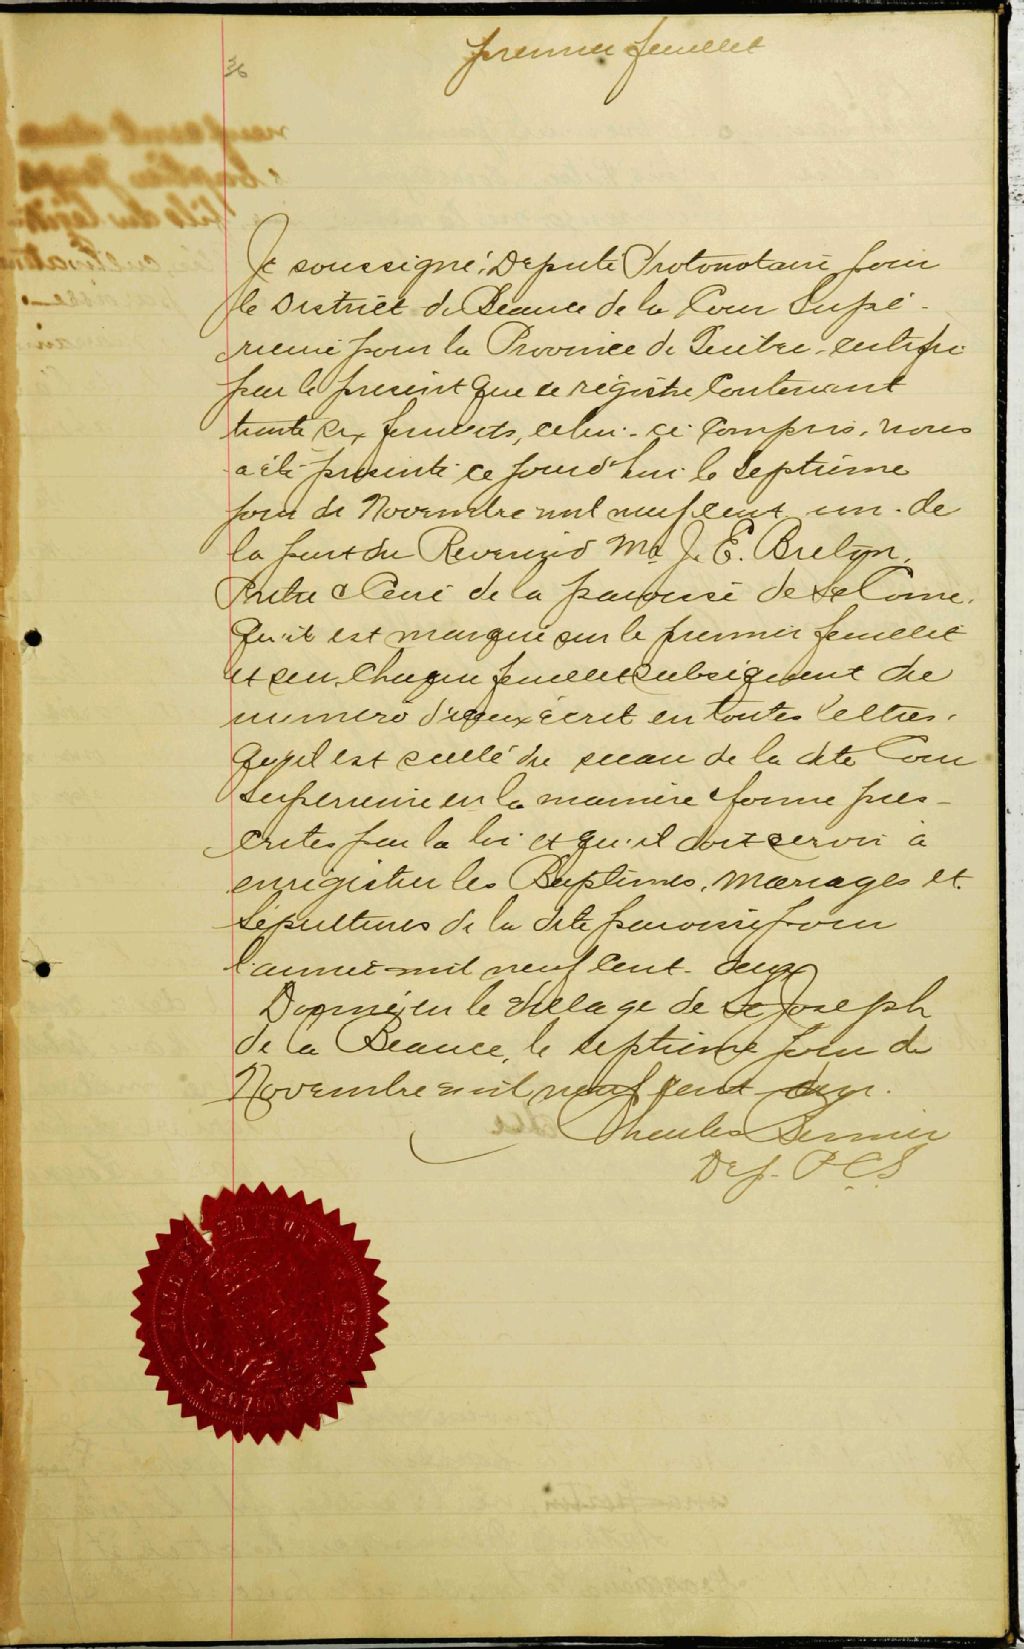 premier feuillet
36
Je soussigné, Député Protonotaire pour
le District de Beauce de la Cour Supé-
rieure pour la Province de Québec, certifie
par le présent que ce régistre contenant
trente six feuillets, celui-ci compris, nous
a été présenté ce jourd'hui le septième
jour de Novembre mil neuf cent un. de
la part du Révérend Mr J. E. Breton,
Prêtre & Curé de la paroisse de St Come.
Qu'il est marqué sur le premier feuillet
et sur chaque feuillet subséquent du
numéro d'iceux écrit en toutes lettres.
qu'il est scellé du sceau de la dite Cour
Supérieure en la manière & forme pres-
crites par la loi et qu'il doit servir à
enrégistrer les Baptêmes, Mariages et
Sépultures de la dite paroisse pour
l'année mil neuf cent-deux
Donné en le village de St Joseph
de la Beauce, le septième jour de
Novembre mil neuf cent
Charles
Dep. P.C.S